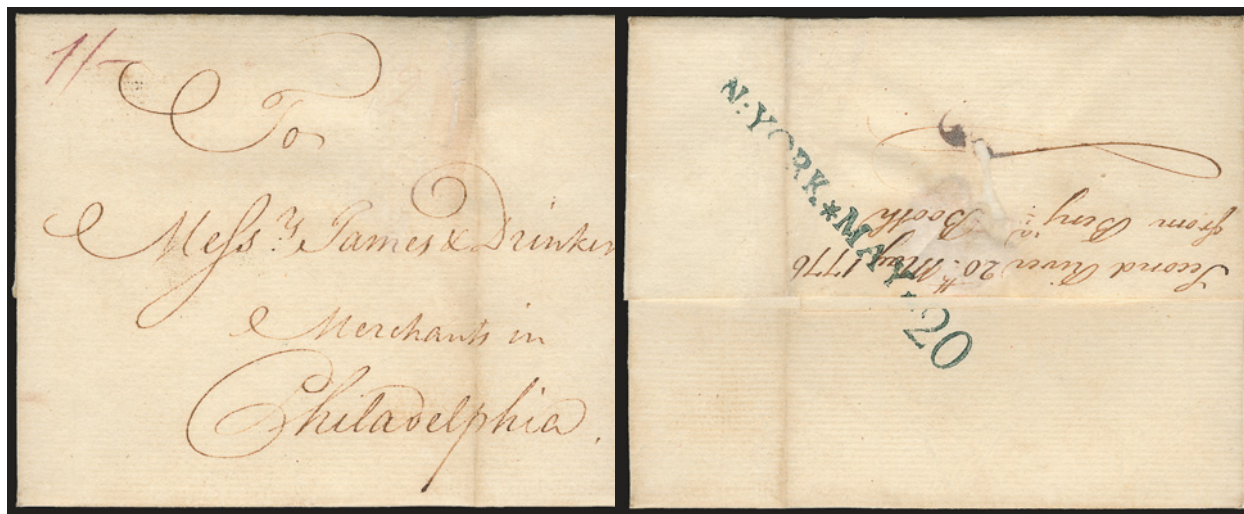 1/-
To
Messrs James & Drinker
Merchants in
Philadelphia.
N·YORK.*MAY·20
Second River 20th May 1776
from Benja Booth